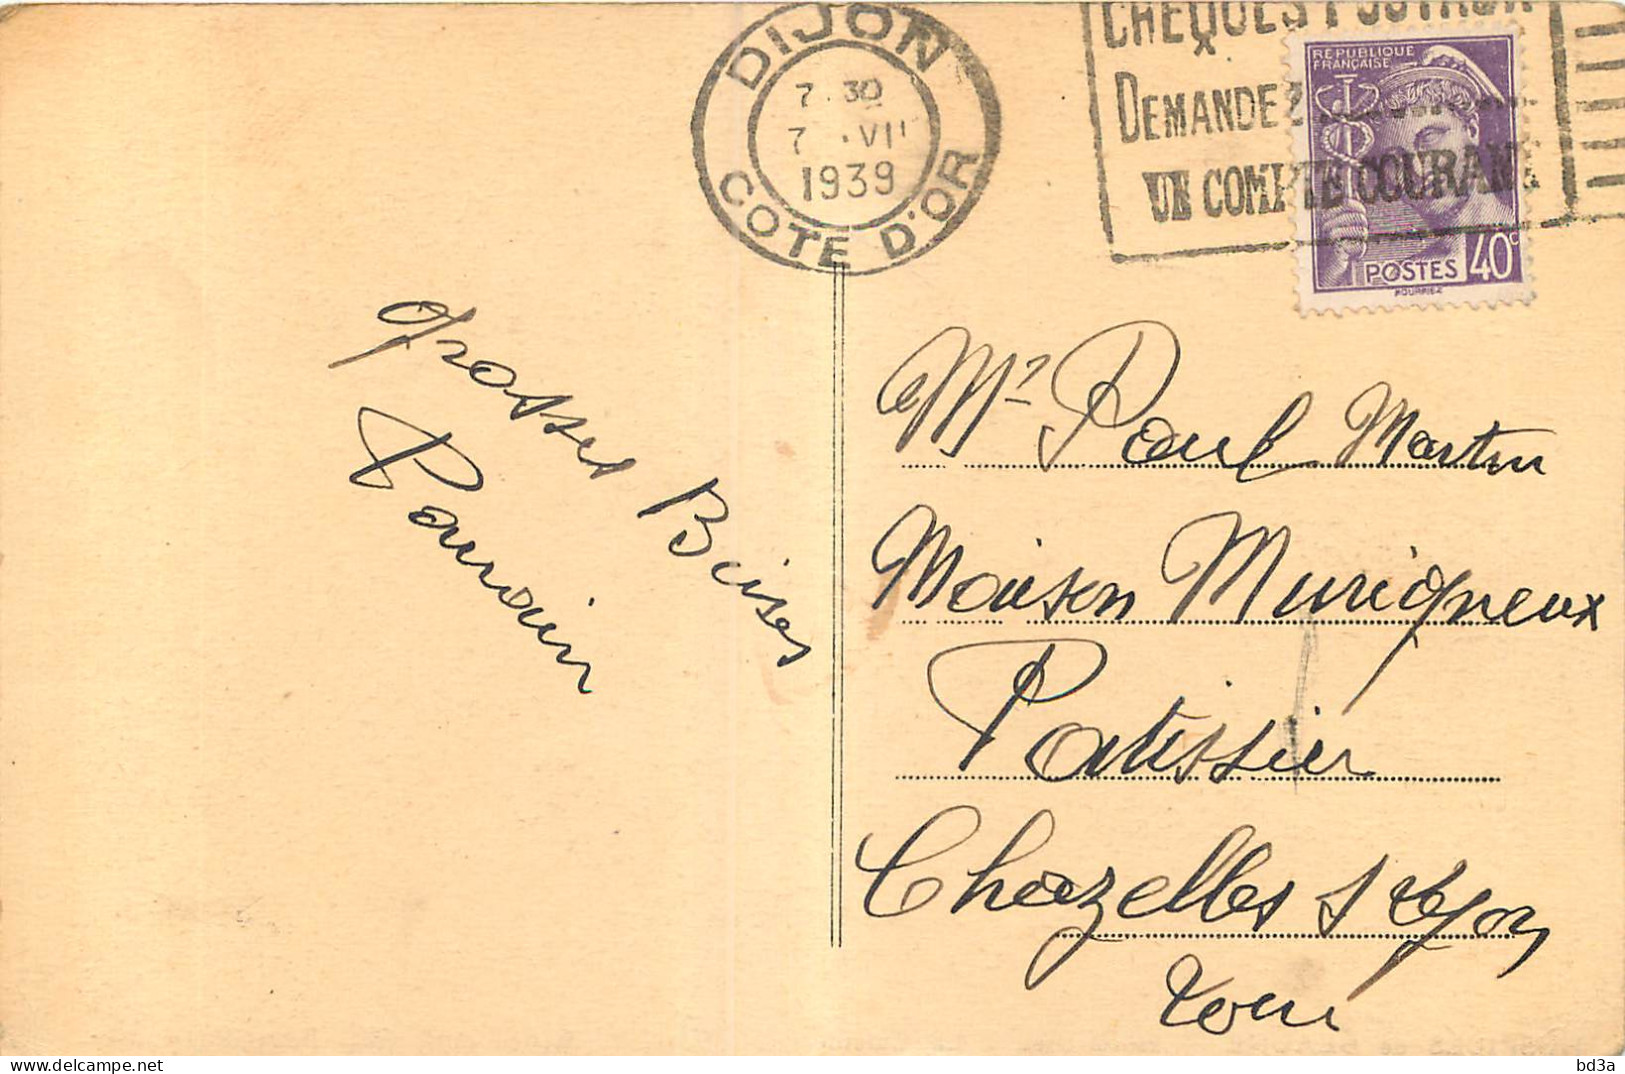 DIJON
7. 30
7 . VII
1939
COTE D'OR
CHEQUES POSTAUX
DEMANDEZ
UN COMPTE COURANT
REPUBLIQUE
FRANÇAISE
POSTES 40c
Grosses Bises
Parrain
Mr Paul Martin
Maison Murigneux
Patissier
Chazelles s Lyon
Loire
bd3a